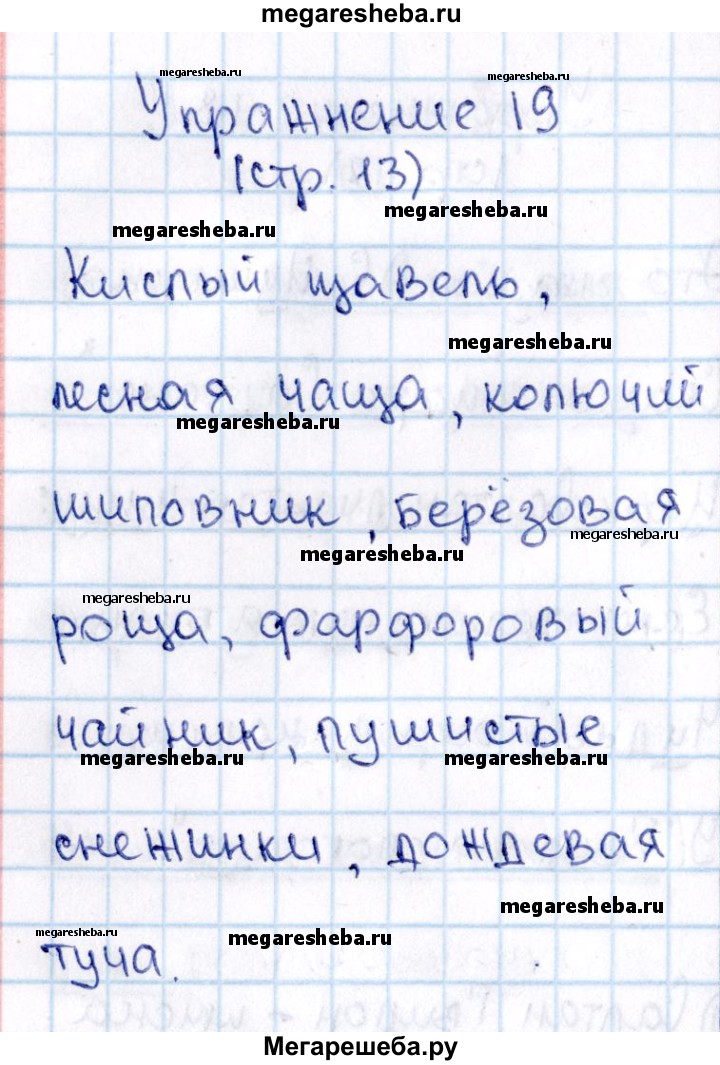 megaresheba.ru
megaresheba.ru megaresheba.ru
Упражнение 19
(стр. 13)
megaresheba.ru
megaresheba.ru
Кислый щавель,
megaresheba.ru
лесная чаща, колючий
megaresheba.ru
шиповник, берёзовая
megaresheba.ru
megaresheba.ru
megaresheba.ru
роща, фарфоровый
чайник, пушистые
megaresheba.ru megaresheba.ru
снежинки, дождевая
megaresheba.ru
megaresheba.ru
megaresheba.ru
туча.
Мегарешеба.ру